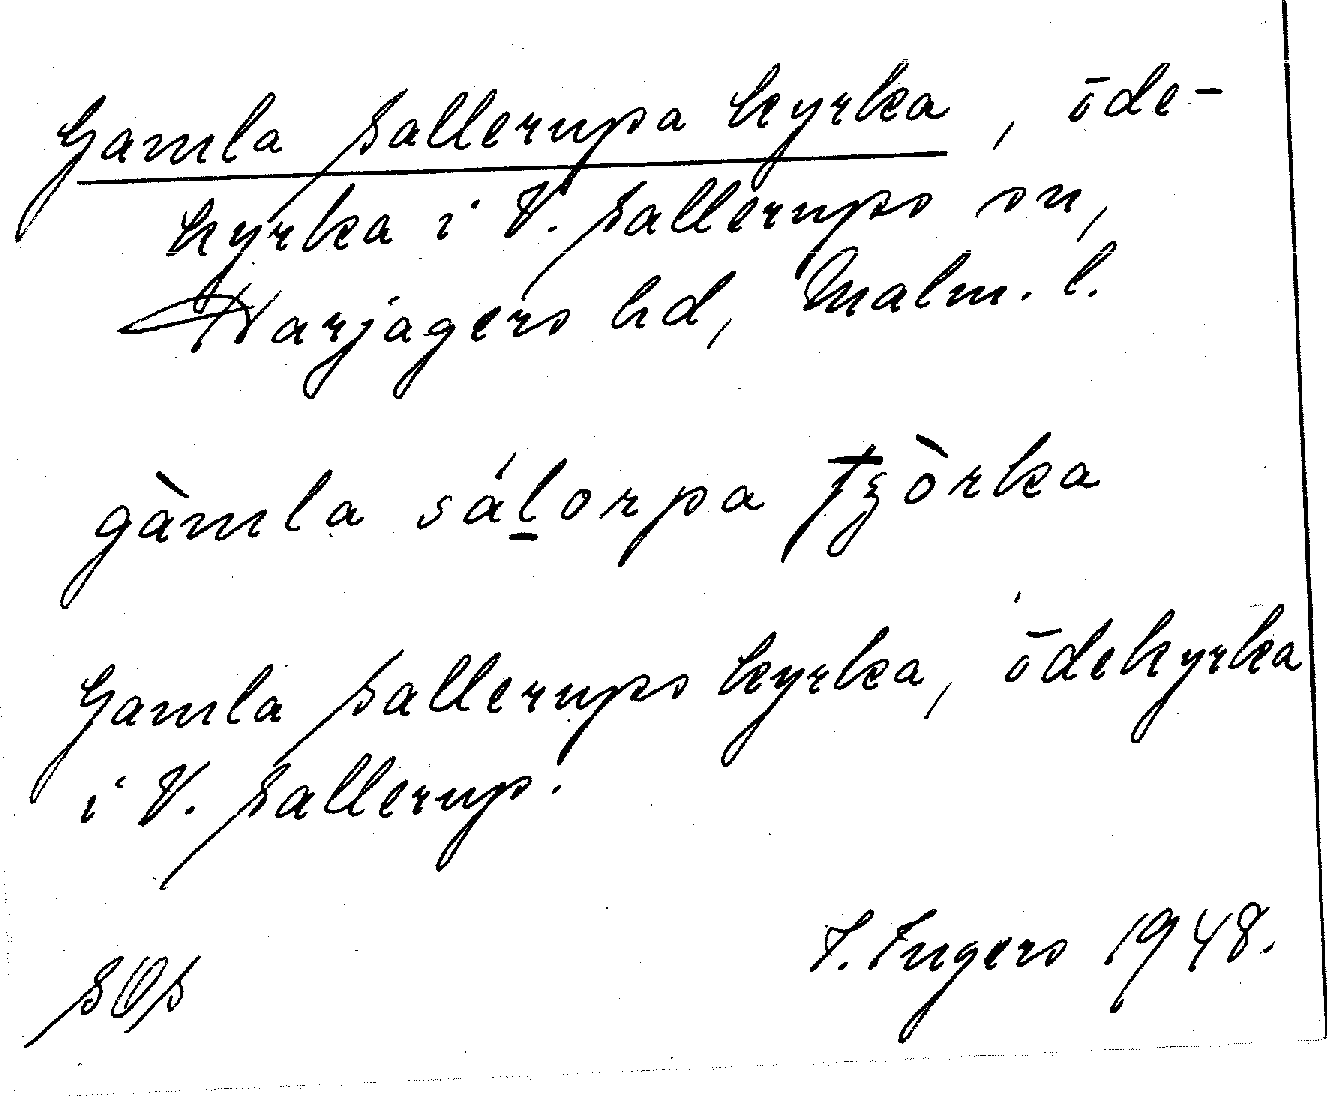 Gamla Sallerups kyrka, öde-
kyrka i V. Sallerups sn,
Harjagers hd, Malm. l.
gàmla sálorpa tʒòrka
Gamla Sallerups kyrka, ödekyrka
i V. Sallerup.
I. Ingers 1948.
SOS